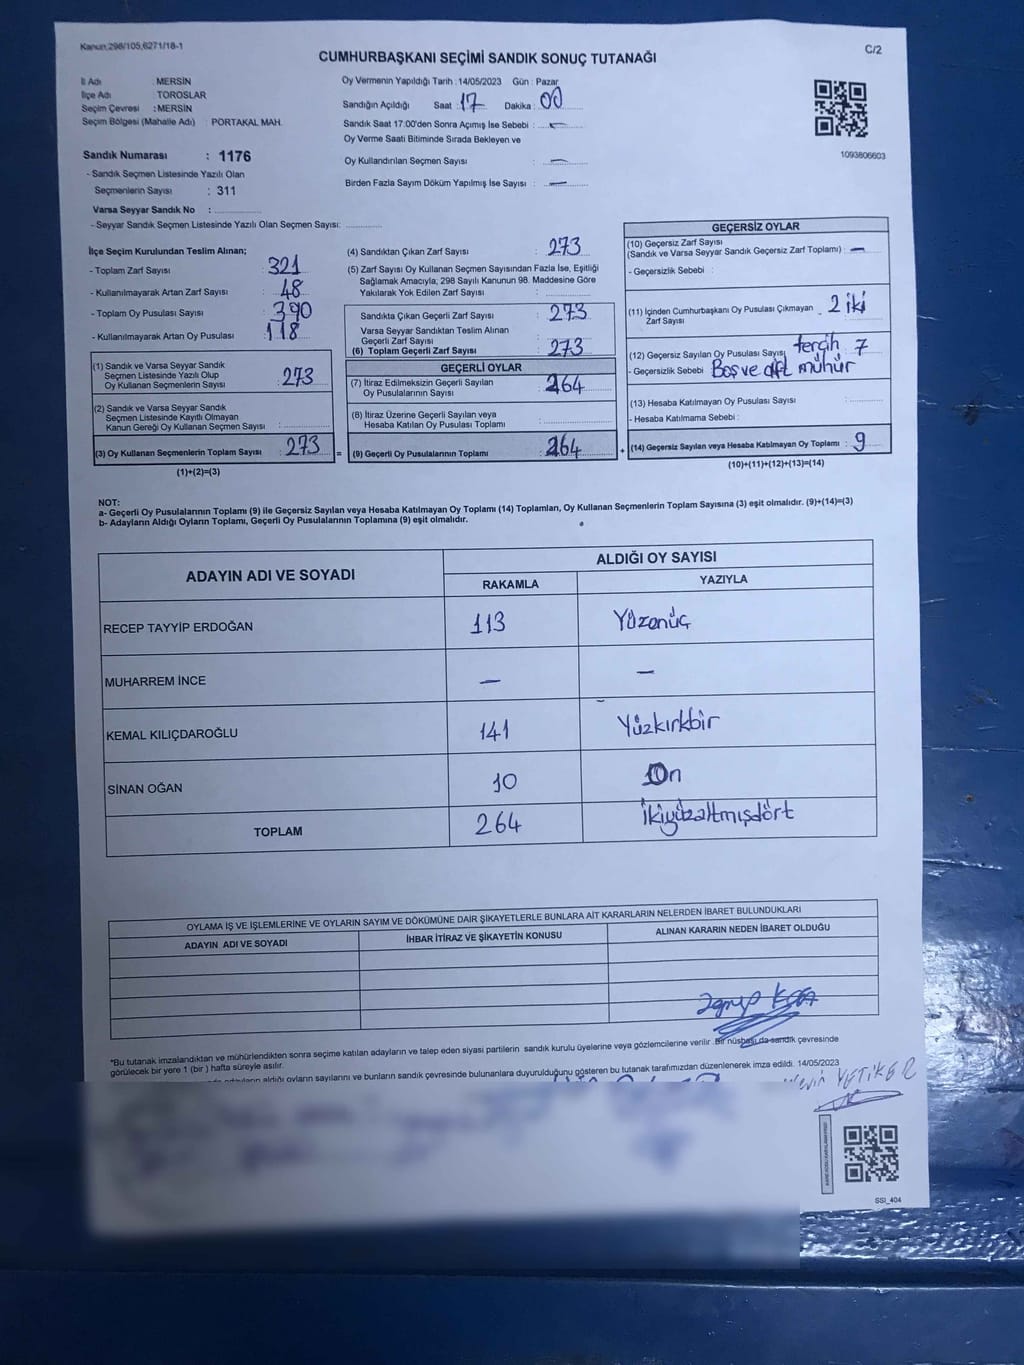 Kanun,298/105,6271/18-1
C/2
CUMHURBAŞKANI SEÇİMİ SANDIK SONUÇ TUTANAĞI
İl Adı : MERSİN
İlçe Adı : TOROSLAR
Seçim Çevresi : MERSİN
Seçim Bölgesi (Mahalle Adı) : PORTAKAL MAH.
Sandık Numarası : 1176
- Sandık Seçmen Listesinde Yazılı Olan
Seçmenlerin Sayısı : 311
Varsa Seyyar Sandık No :
- Seyyar Sandık Seçmen Listesinde Yazılı Olan Seçmen Sayısı:
Oy Vermenin Yapıldığı Tarih : 14/05/2023 Gün : Pazar
Sandığın Açıldığı Saat : 17 Dakika : 00
Sandık Saat 17:00'den Sonra Açımış İse Sebebi : —
Oy Verme Saati Bitiminde Sırada Bekleyen ve
Oy Kullandırılan Seçmen Sayısı : —
Birden Fazla Sayım Döküm Yapılmış İse Sayısı : —
1093806603
İlçe Seçim Kurulundan Teslim Alınan;
- Toplam Zarf Sayısı : 321
- Kullanılmayarak Artan Zarf Sayısı : 48
- Toplam Oy Pusulası Sayısı : 390
- Kullanılmayarak Artan Oy Pusulası : 118
(1) Sandık ve Varsa Seyyar Sandık
Seçmen Listesinde Yazılı Olup
Oy Kullanan Seçmenlerin Sayısı : 273
(2) Sandık ve Varsa Seyyar Sandık
Seçmen Listesinde Kayıtlı Olmayan
Kanun Gereği Oy Kullanan Seçmen Sayısı :
(3) Oy Kullanan Seçmenlerin Toplam Sayısı : 273
(1)+(2)=(3)
(4) Sandıktan Çıkan Zarf Sayısı : 273
(5) Zarf Sayısı Oy Kullanan Seçmen Sayısından Fazla İse, Eşitliği
Sağlamak Amacıyla, 298 Sayılı Kanunun 98. Maddesine Göre
Yakılarak Yok Edilen Zarf Sayısı :
Sandıkta Çıkan Geçerli Zarf Sayısı : 273
Varsa Seyyar Sandıktan Teslim Alınan
Geçerli Zarf Sayısı :
(6) Toplam Geçerli Zarf Sayısı : 273
GEÇERLİ OYLAR
(7) İtiraz Edilmeksizin Geçerli Sayılan
Oy Pusulalarının Sayısı : 264
(8) İtiraz Üzerine Geçerli Sayılan veya
Hesaba Katılan Oy Pusulası Toplamı :
= (9) Geçerli Oy Pusulalarının Toplamı : 264
GEÇERSİZ OYLAR
(10) Geçersiz Zarf Sayısı
(Sandık ve Varsa Seyyar Sandık Geçersiz Zarf Toplamı) : —
- Geçersizlik Sebebi :
(11) İçinden Cumhurbaşkanı Oy Pusulası Çıkmayan : 2 iki
Zarf Sayısı
(12) Geçersiz Sayılan Oy Pusulası Sayısı : tercih 7
- Geçersizlik Sebebi : Boş ve çift mühür
(13) Hesaba Katılmayan Oy Pusulası Sayısı :
- Hesaba Katılmama Sebebi :
+ (14) Geçersiz Sayılan veya Hesaba Katılmayan Oy Toplamı : 9
(10)+(11)+(12)+(13)=(14)
NOT:
a- Geçerli Oy Pusulalarının Toplamı (9) ile Geçersiz Sayılan veya Hesaba Katılmayan Oy Toplamı (14) Toplamları, Oy Kullanan Seçmenlerin Toplam Sayısına (3) eşit olmalıdır. (9)+(14)=(3)
b- Adayların Aldığı Oyların Toplamı, Geçerli Oy Pusulalarının Toplamına (9) eşit olmalıdır.
ADAYIN ADI VE SOYADI
ALDIĞI OY SAYISI
RAKAMLA YAZIYLA
RECEP TAYYİP ERDOĞAN 113 Yüzonüç
MUHARREM İNCE — —
KEMAL KILIÇDAROĞLU 141 Yüzkırkbir
SİNAN OĞAN 10 On
TOPLAM 264 İkiyüzaltmışdört
OYLAMA İŞ VE İŞLEMLERİNE VE OYLARIN SAYIM VE DÖKÜMÜNE DAİR ŞİKAYETLERLE BUNLARA AİT KARARLARIN NELERDEN İBARET BULUNDUKLARI
ADAYIN ADI VE SOYADI İHBAR İTİRAZ VE ŞİKAYETİN KONUSU ALINAN KARARIN NEDEN İBARET OLDUĞU
*Bu tutanak imzalandıktan ve mühürlendikten sonra seçime katılan adayların ve talep eden siyasi partilerin sandık kurulu üyelerine veya gözlemcilerine verilir. Bir nüshası da sandık çevresinde
görülecek bir yere 1 (bir ) hafta süreyle asılır.
aldığı oyların sayılarını ve bunların sandık çevresinde bulunanlara duyurulduğunu gösteren bu tutanak tarafımızdan düzenlenerek imza edildi. 14/05/2023
YETİKER
SSI_404